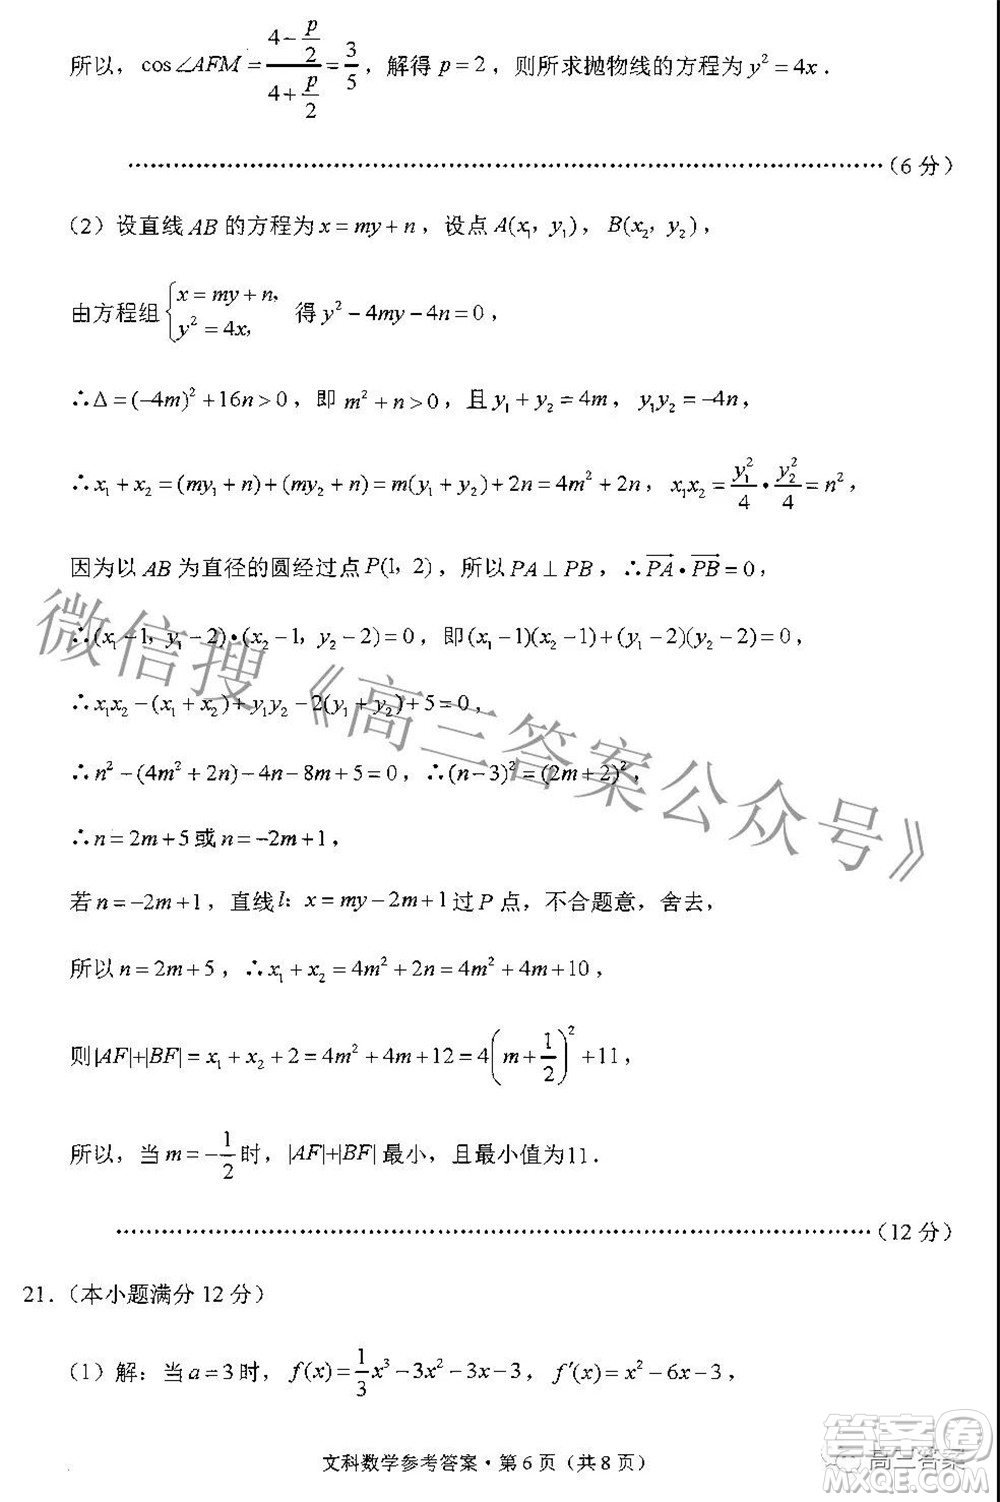 所以，cos∠AFM = (4 − p/2)/(4 + p/2) = 3/5，解得 p = 2，则所求抛物线的方程为 y² = 4x．
……………………………………………………………（6 分）
（2）设直线 AB 的方程为 x = my + n，设点 A(x₁，y₁)，B(x₂，y₂)，
由方程组 { x = my + n， y² = 4x， 得 y² − 4my − 4n = 0，
∴Δ = (−4m)² + 16n > 0，即 m² + n > 0，且 y₁ + y₂ = 4m，y₁y₂ = −4n，
∴x₁ + x₂ = (my₁ + n) + (my₂ + n) = m(y₁ + y₂) + 2n = 4m² + 2n，x₁x₂ = y₁²/4 • y₂²/4 = n²，
因为以 AB 为直径的圆经过点 P(1，2)，所以 PA ⊥ PB，∴PA⃗ • PB⃗ = 0，
∴(x₁ − 1，y₁ − 2) • (x₂ − 1，y₂ − 2) = 0，即 (x₁ − 1)(x₂ − 1) + (y₁ − 2)(y₂ − 2) = 0，
∴x₁x₂ − (x₁ + x₂) + y₁y₂ − 2(y₁ + y₂) + 5 = 0，
∴n² − (4m² + 2n) − 4n − 8m + 5 = 0，∴(n − 3)² = (2m + 2)²，
∴n = 2m + 5 或 n = −2m + 1，
若 n = −2m + 1，直线 l：x = my − 2m + 1 过 P 点，不合题意，舍去，
所以 n = 2m + 5，∴x₁ + x₂ = 4m² + 2n = 4m² + 4m + 10，
则|AF| + |BF| = x₁ + x₂ + 2 = 4m² + 4m + 12 = 4(m + 1/2)² + 11，
所以，当 m = −1/2 时，|AF| + |BF| 最小，且最小值为11．
……………………………………………………………（12 分）
21．（本小题满分 12 分）
（1）解：当 a = 3 时，f(x) = 1/3 x³ − 3x² − 3x − 3，f′(x) = x² − 6x − 3，
文科数学参考答案 · 第 6 页（共 8 页）
微信搜《高三答案公众号》
高三答案
答案圈
MXQE.COM